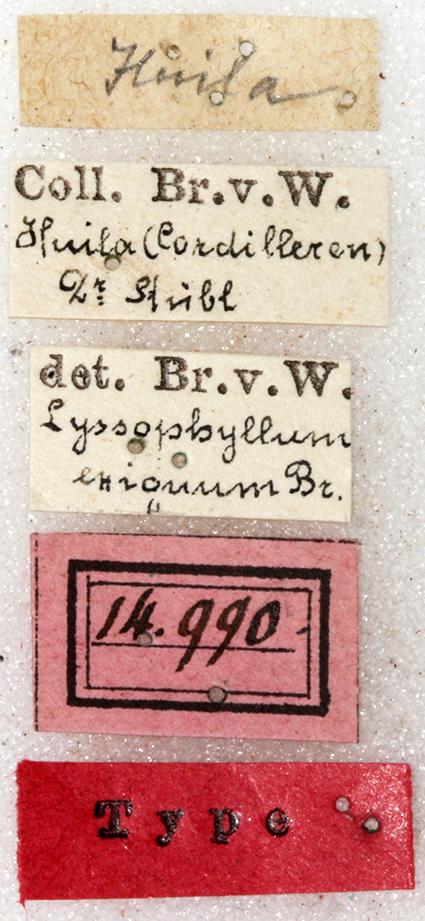 Huila
Coll. Br.v.W.
Huila (Cordilleren)
Dr Stübl
det. Br.v.W.
Lyssophyllum
exiguum Br.
14.990.
Type